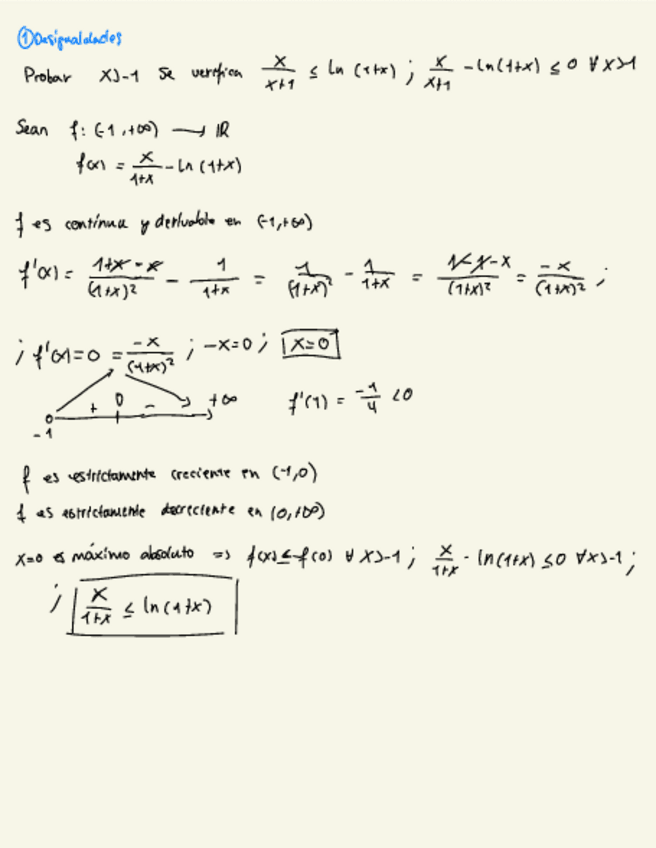 ① Desigualdades
Probar x>-1 se verifica x/(x+1) ≤ ln(1+x) ; x/(x+1) - ln(1+x) ≤ 0 ∀x>-1
Sean f: (-1,+∞) → IR
f(x) = x/(1+x) - ln(1+x)
f es contínua y derivable en (-1,+∞)
f'(x) = (1+x-x)/(1+x)² - 1/(1+x) = 1/(1+x)² - 1/(1+x) = (1-1-x)/(1+x)² = -x/(1+x)² ;
; f'(x)=0 = -x/(1+x)² ; -x=0 ; x=0
-1 + 0 - +∞ f'(1) = -1/4 <0
f es estrictamente creciente en (-1,0)
f es estrictamente decreciente en (0,+∞)
x=0 es máximo absoluto => f(x) ≤ f(0) ∀ x>-1 ; x/(1+x) - ln(1+x) ≤ 0 ∀x>-1 ;
; x/(1+x) ≤ ln(1+x)